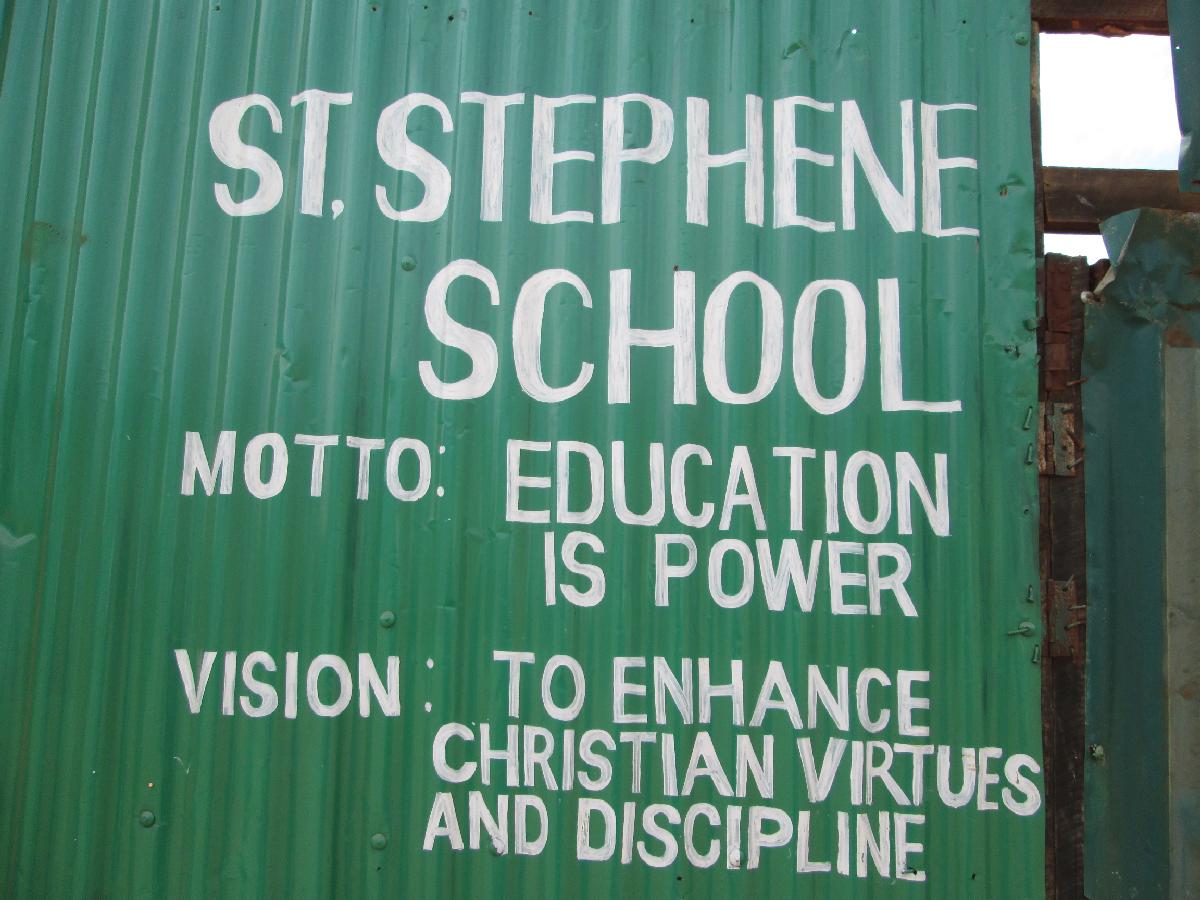 ST. STEPHENE
SCHOOL
MOTTO: EDUCATION
IS POWER
VISION: TO ENHANCE
CHRISTIAN VIRTUES
AND DISCIPLINE